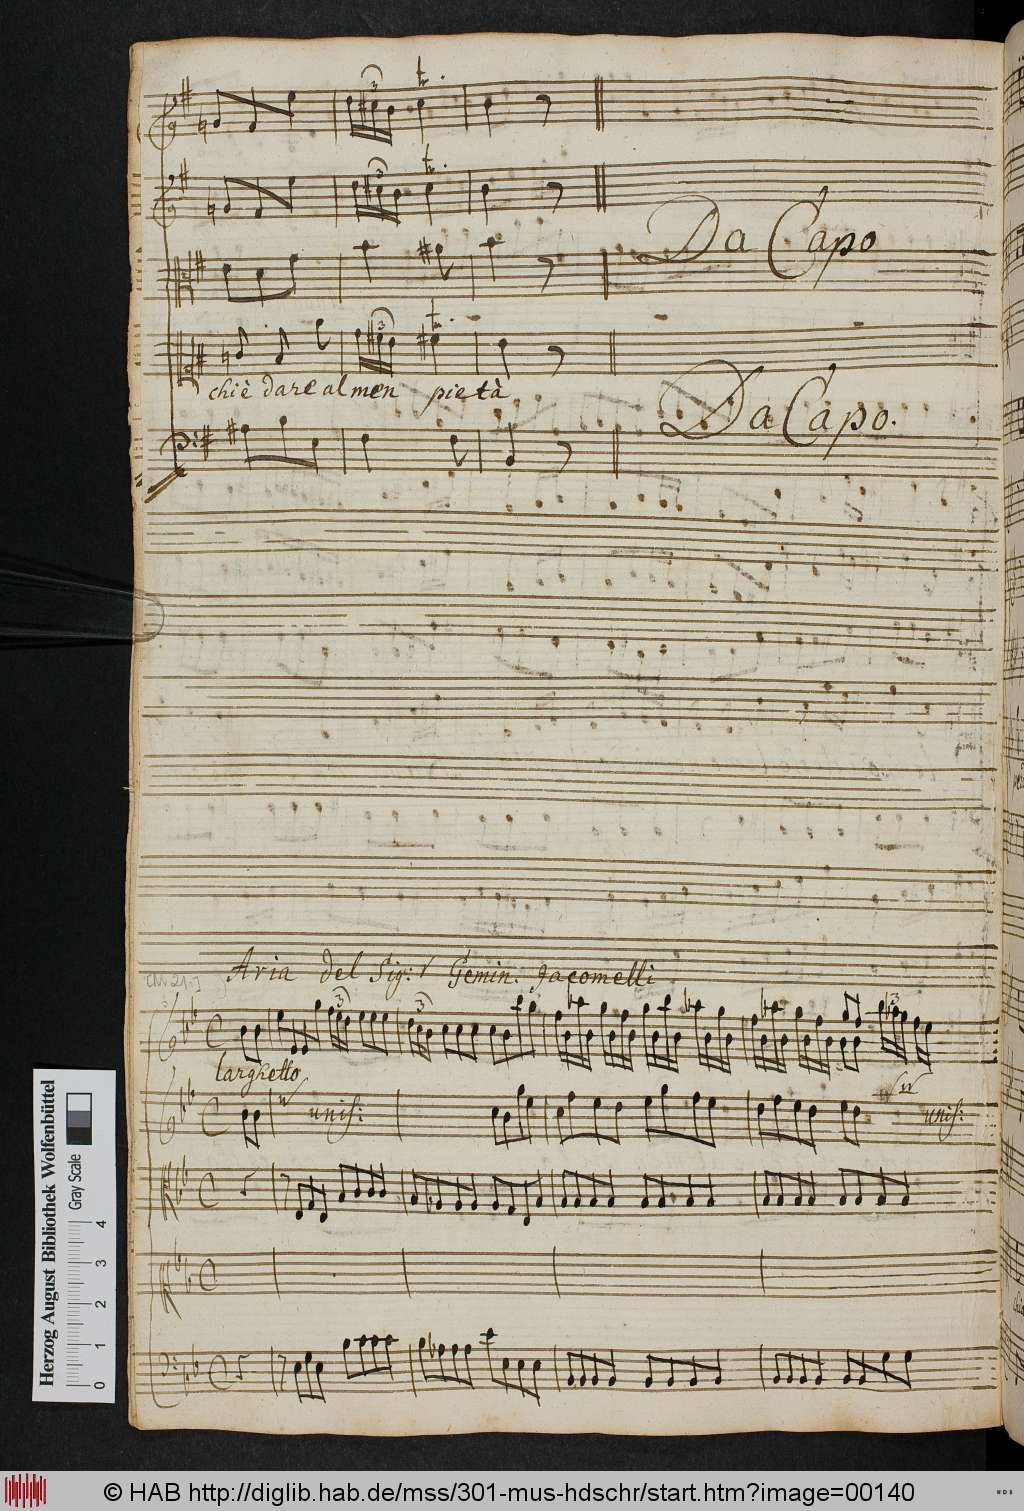 Da Capo
chi è dare almen pietà
Da Capo.
Aria del Sig:r Gemin. Jacomelli
larghetto
unis:
unis:
Herzog August Bibliothek Wolfenbüttel
Gray Scale
0 1 2 3 4
© HAB http://diglib.hab.de/mss/301-mus-hdschr/start.htm?image=00140